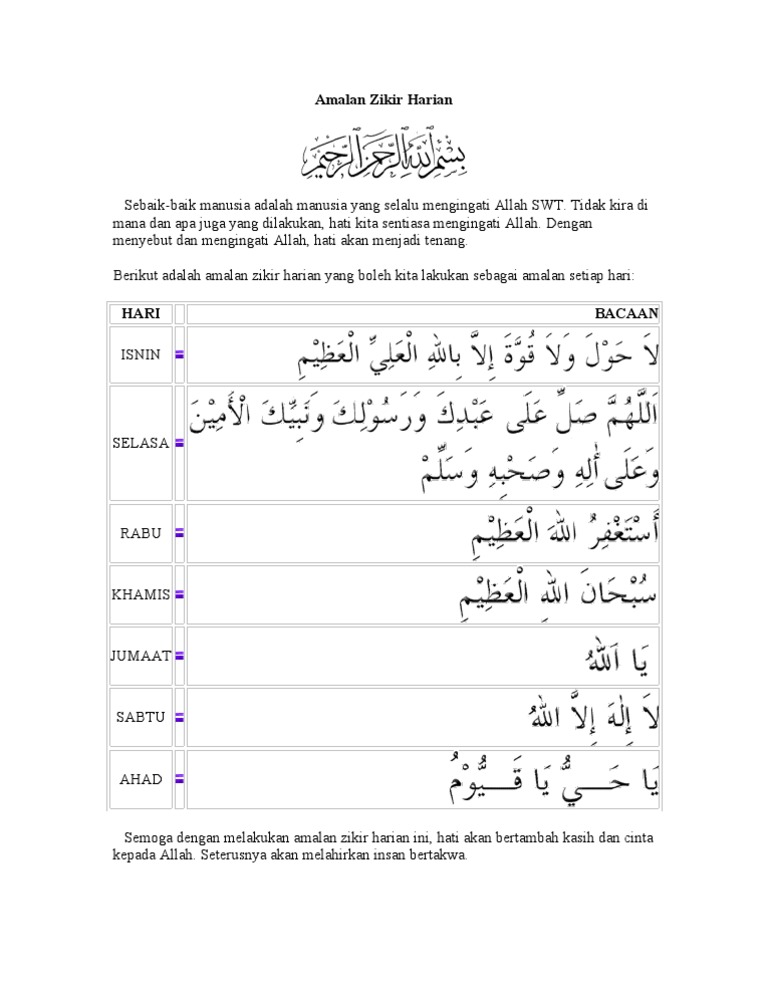 Amalan Zikir Harian
بِسْمِ اللهِ الرَّحْمٰنِ الرَّحِيْمِ
Sebaik-baik manusia adalah manusia yang selalu mengingati Allah SWT. Tidak kira di
mana dan apa juga yang dilakukan, hati kita sentiasa mengingati Allah. Dengan
menyebut dan mengingati Allah, hati akan menjadi tenang.
Berikut adalah amalan zikir harian yang boleh kita lakukan sebagai amalan setiap hari:
HARI BACAAN
ISNIN = لاَ حَوْلَ وَلاَ قُوَّةَ إِلاَّ بِاللهِ الْعَلِيِّ الْعَظِيْمِ
SELASA = اَللَّهُمَّ صَلِّ عَلَى عَبْدِكَ وَرَسُوْلِكَ وَنَبِيِّكَ الْأَمِيْنَ
وَعَلَى أٰلِهِ وَصَحْبِهِ وَسَلِّمْ
RABU = أَسْتَغْفِرُ اللهَ الْعَظِيْمِ
KHAMIS = سُبْحَانَ اللهِ الْعَظِيْمِ
JUMAAT = يَا اَللهُ
SABTU = لاَ إِلٰهَ إِلاَّ اللهُ
AHAD = يَا حَـــيُّ يَا قَـــيُّوْمُ
Semoga dengan melakukan amalan zikir harian ini, hati akan bertambah kasih dan cinta
kepada Allah. Seterusnya akan melahirkan insan bertakwa.